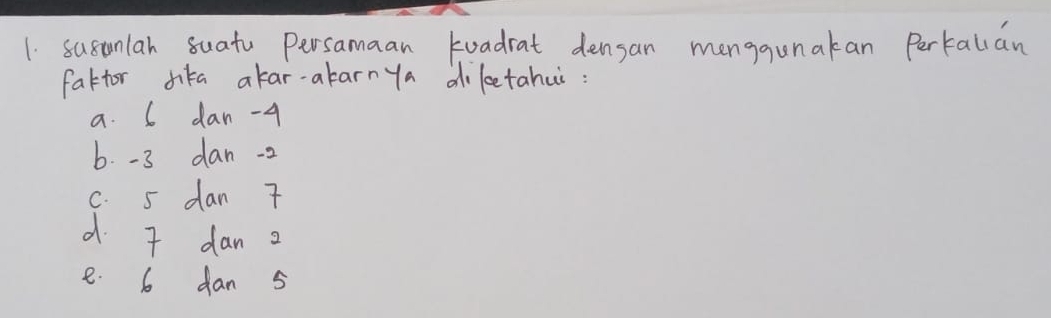 1. susunlah suatu Persamaan kuadrat dengan menggunakan Perkalian
faktor jika akar-akarnya diketahui :
a. 6 dan -4
b. -3 dan -2
c. 5 dan 7
d. 7 dan 2
e. 6 dan 5